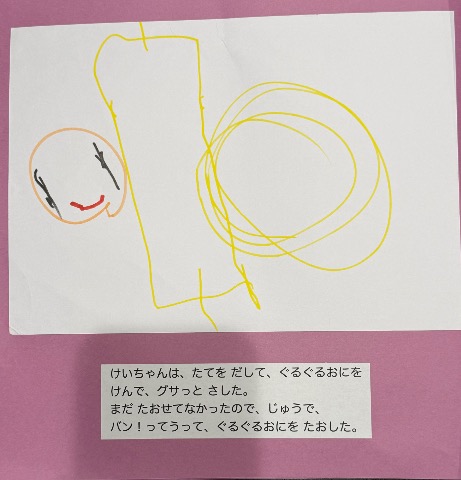 けいちゃんは、たてを だして、ぐるぐるおにを
けんで、グサっと さした。
まだ たおせてなかったので、じゅうで、
バン！ってうって、ぐるぐるおにを たおした。